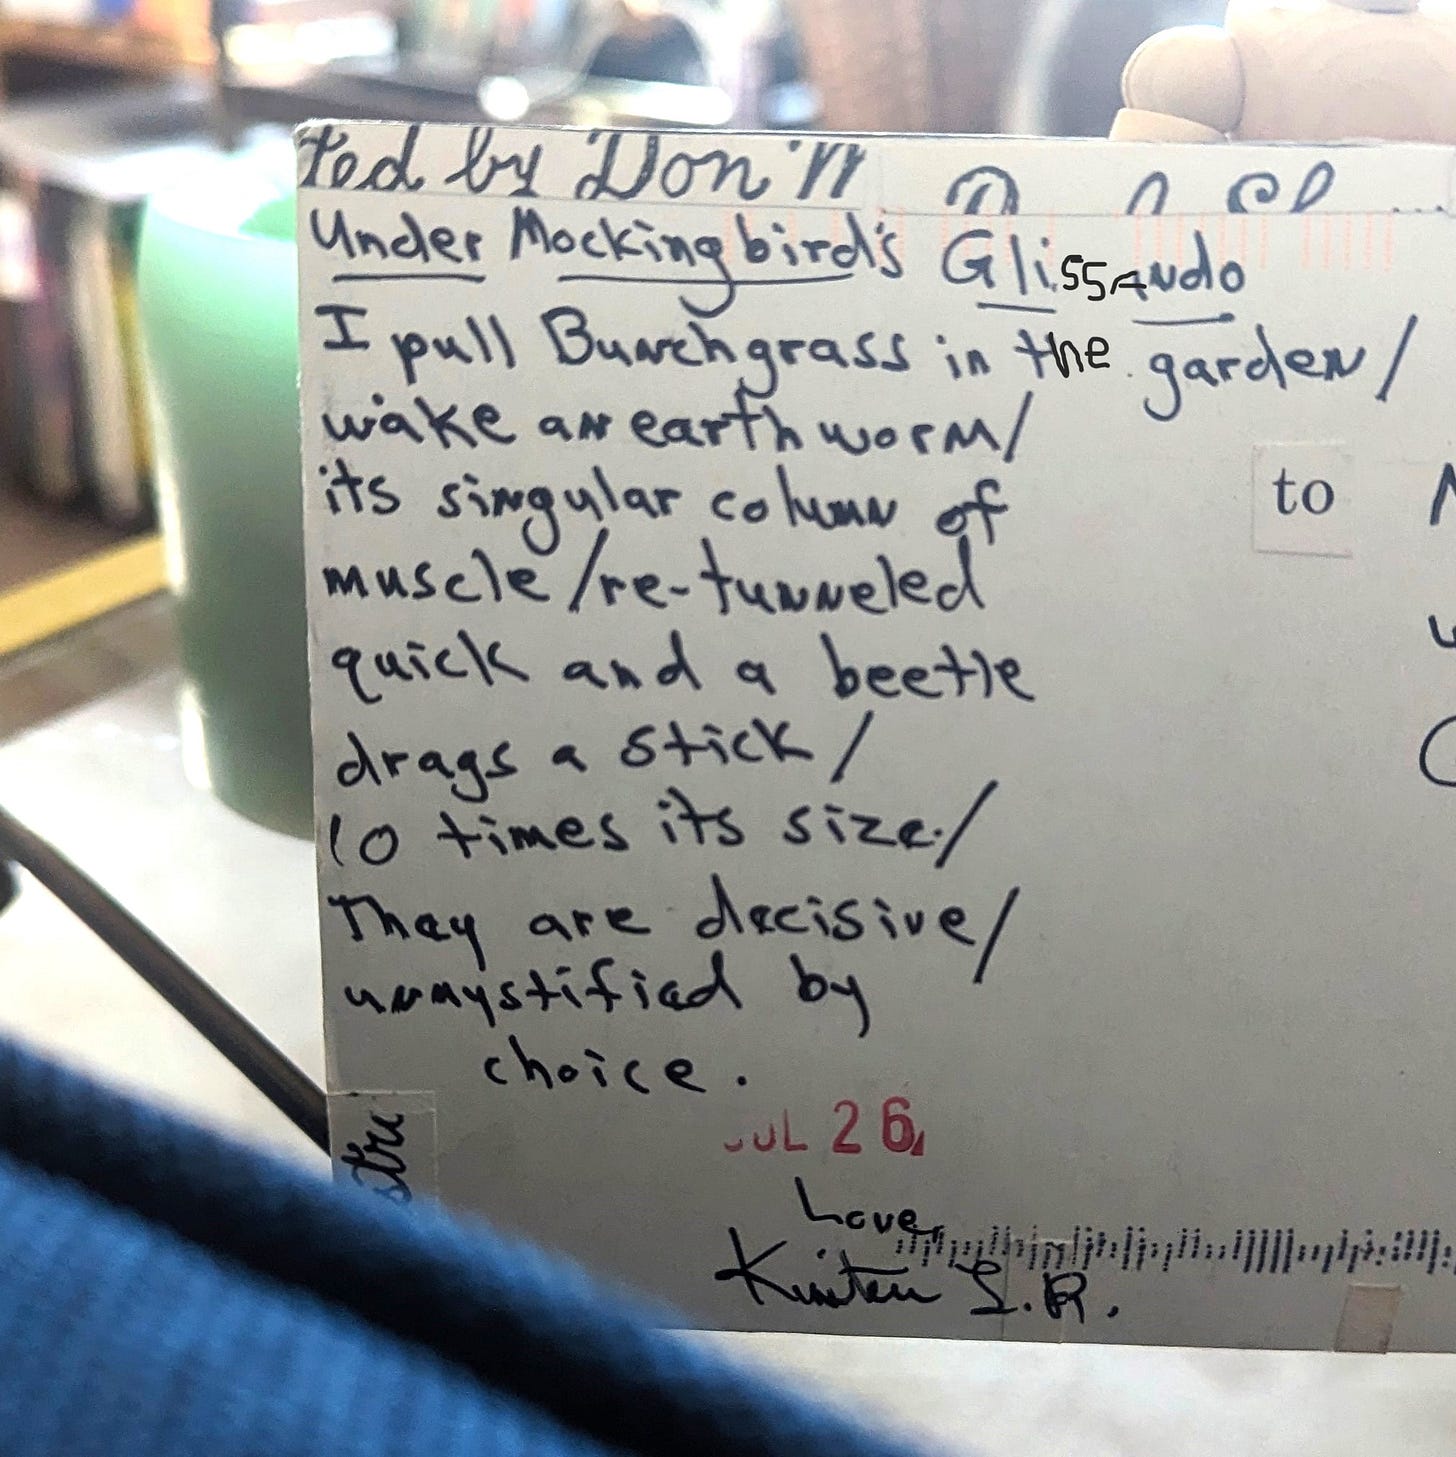 ted by Don'n
Under Mockingbird's Glissando
I pull Bunchgrass in the garden/
wake an earthworm/
its singular column of
to
muscle/re-tunneled
quick and a beetle
drags a stick/
10 times its size./
They are decisive/
unmystified by
choice.
stru
JUL 26
Love,
Kirsten S.R.